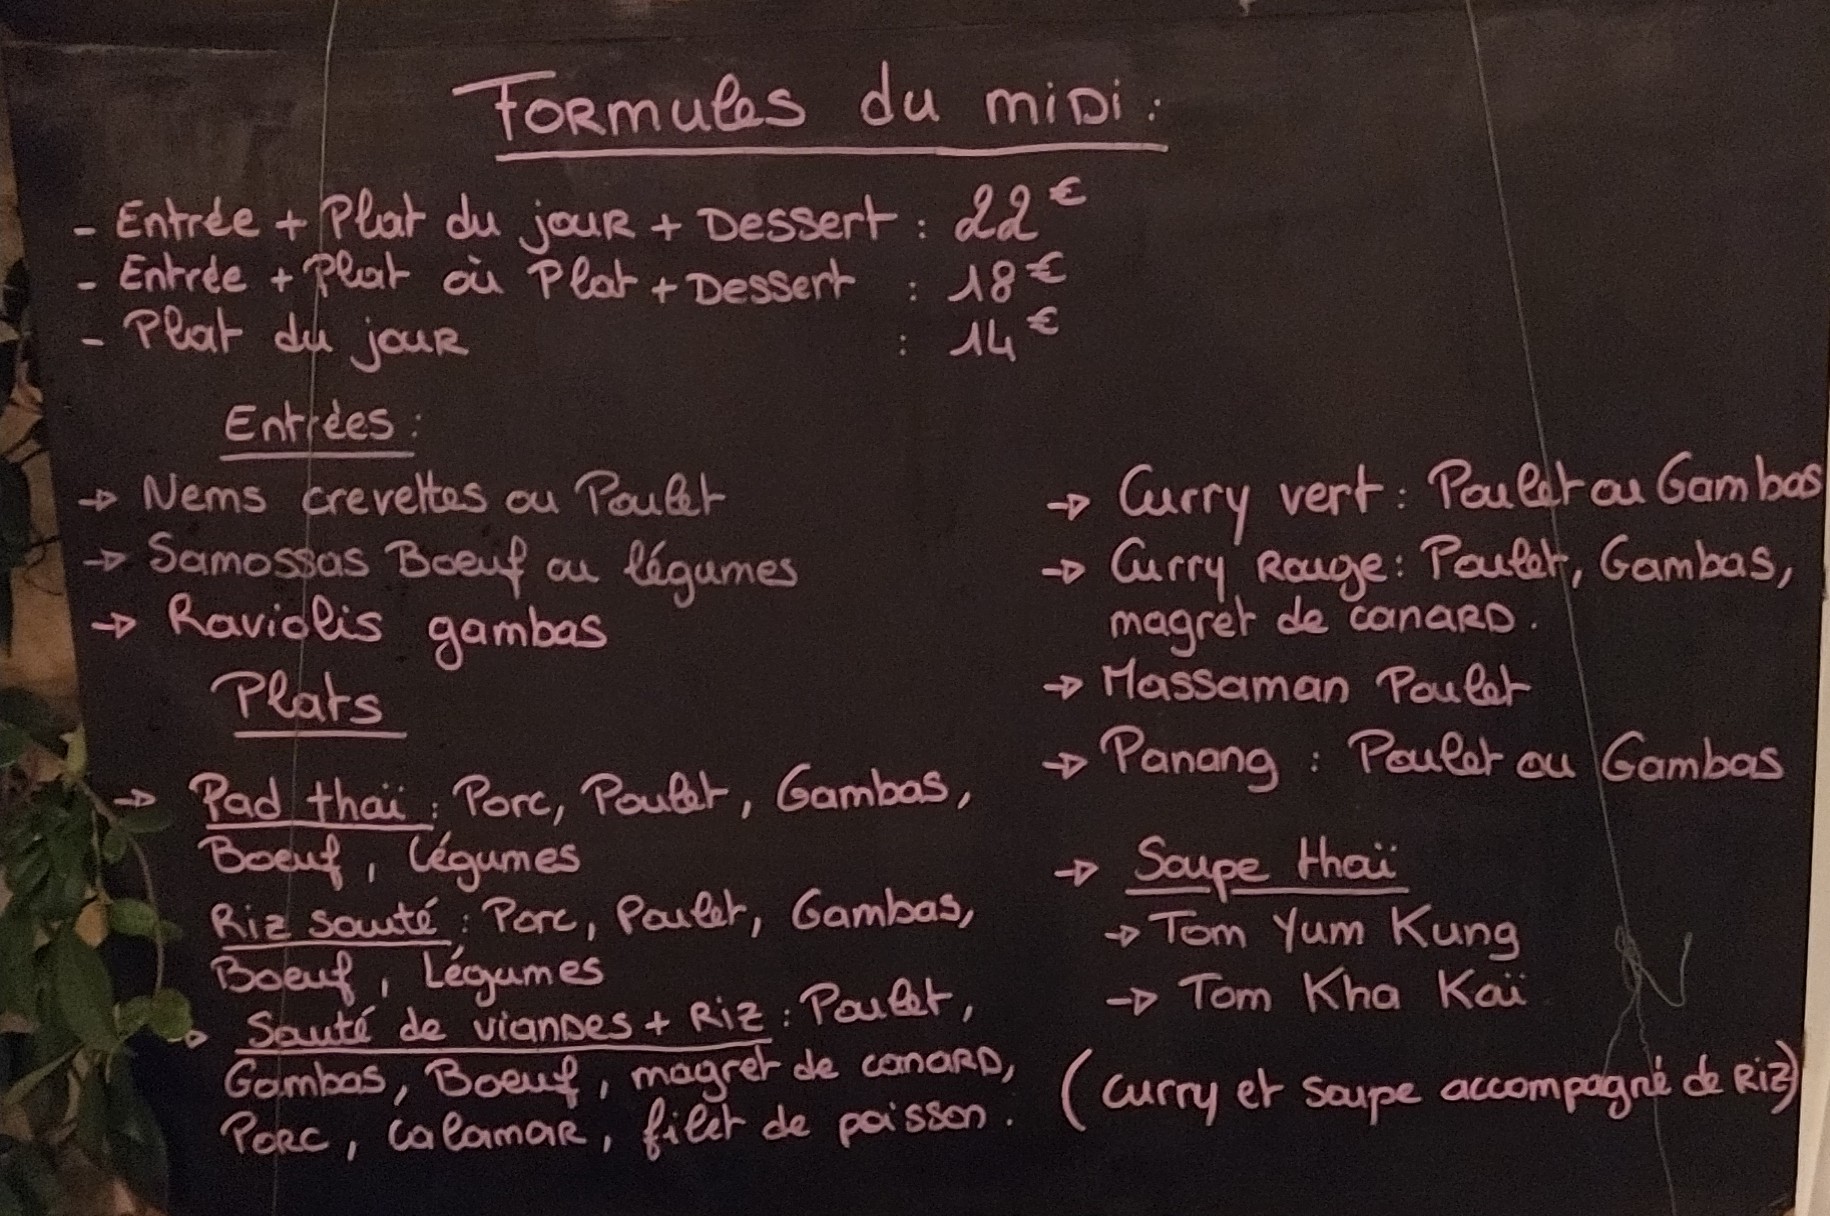 Formules du midi :
- Entrée + Plat du jour + Dessert : 22€
- Entrée + Plat où Plat + Dessert : 18€
- Plat du jour : 14€
Entrées :
→ Nems crevettes ou Poulet
→ Samossas Boeuf ou légumes
→ Raviolis gambas
Plats
→ Pad thaï : Porc, Poulet, Gambas,
Boeuf, légumes
Riz sauté : Porc, Poulet, Gambas,
Boeuf, Légumes
→ Sauté de viandes + Riz : Poulet,
Gambas, Boeuf, magret de canard,
Porc, Calamar, filet de poisson.
→ Curry vert : Poulet ou Gambas
→ Curry Rouge : Poulet, Gambas,
magret de canard.
→ Massaman Poulet
→ Panang : Poulet ou Gambas
→ Soupe thaï
→ Tom Yum Kung
→ Tom Kha Kaï
(Curry et soupe accompagné de Riz)